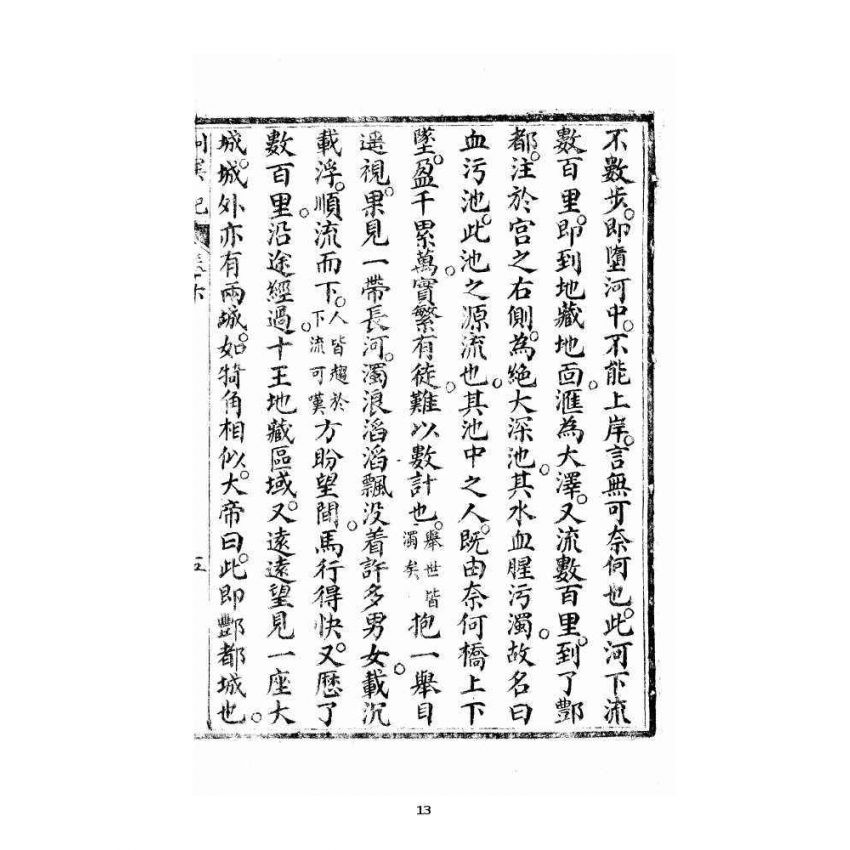 不數步。即墮河中。不能上岸。言無可奈何也。此河下流
數百里。即到地藏地靣。滙為大澤。又流數百里。到了酆
都。注於宫之右側。為絕大深池。其水血腥污濁。故名曰
血污池。此池之源流也。其池中之人。既由奈何橋上下
墜。盈千累萬。實繁有徒。難以數計也。舉世皆濁矣抱一舉目
遥視。果見一帶長河。濁浪滔滔。飄没着許多男女。載沉
載浮。順流而下。人皆趨於下流可嘆方盼望間。馬行得快。又歴了
數百里。沿途經過。十王地藏區域。又遠遠望見一座大
城。城外亦有兩城。如犄角相似。大帝曰。此即酆都城也。
五
13